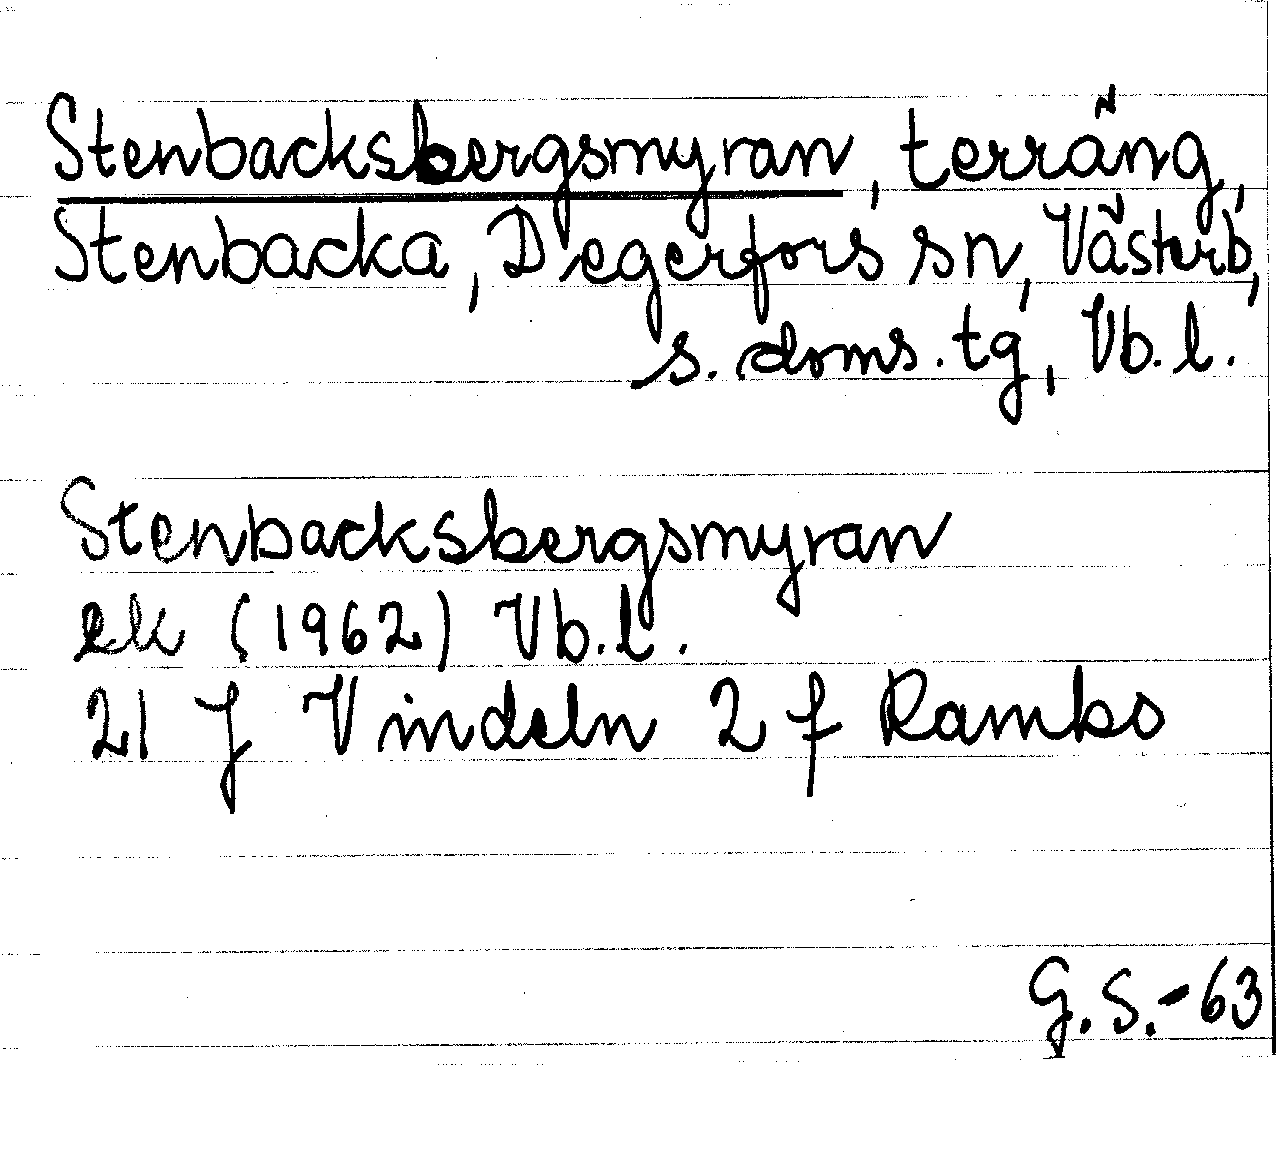 Stenbacksbergsmyran, terräng,
Stenbacka, Degerfors sn, Västerb,
s. doms. tg, Vb. l.
Stenbacksbergsmyran
ek (1962) Vb. l.
21 J Vindeln 2 f Rambo
G. S. - 63